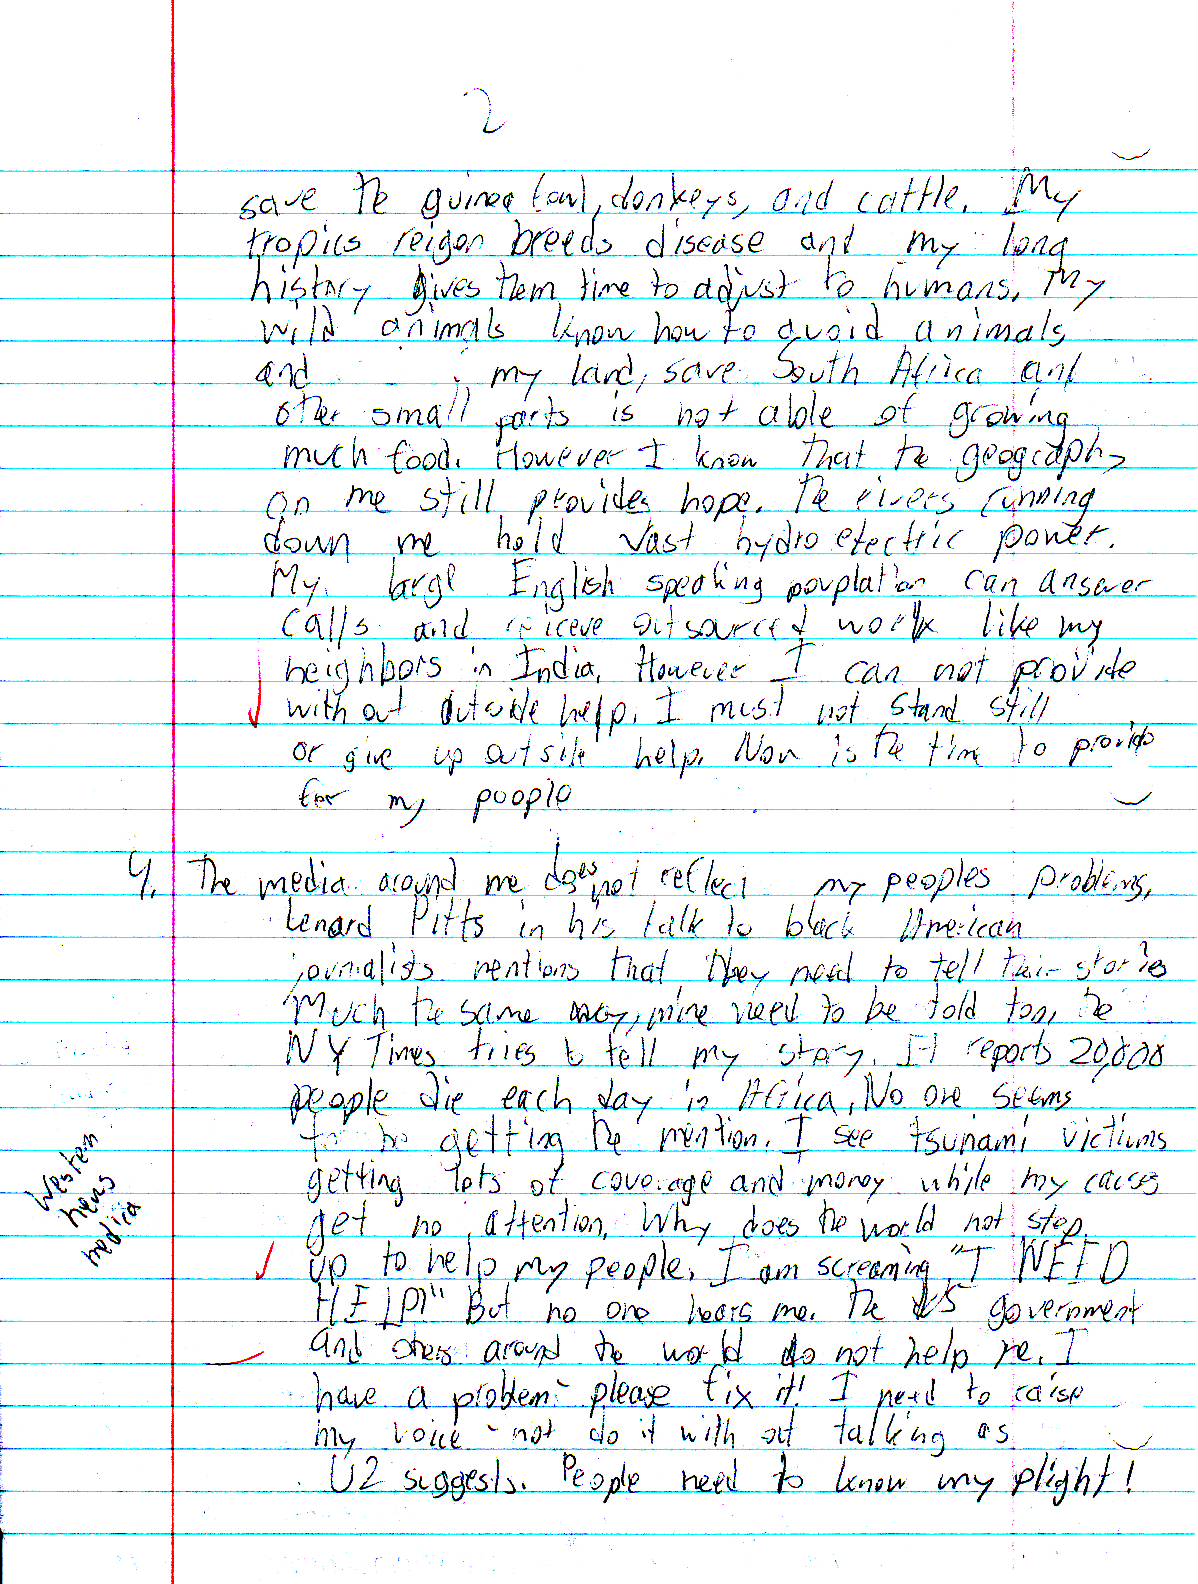 2
save the guinea fowl, donkeys, and cattle. My
tropics reigon breeds disease and my long
history gives them time to adjust to humans. My
wild animals know how to avoid animals
and my land, save South Africa and
other small parts is not able of growing
much food. However I know that the geography
on me still provides hope. The rivers running
down me hold vast hydro electric power.
My large English speaking pouplation can answer
calls and reiceve outsourced work like my
neighbors in India. However I can not provide
with out outside help. I must not stand still
or give up outside help. Now is the time to provide
for my poople
4. The media around me does not reflect my peoples problems.
Lenard Pitts in his talk to black American
journalists mentions that they need to tell their stories
Much the same way, mine need to be told too, the
NY Times tries to tell my story. It reports 20,000
people die each day in Africa, No one seems
to be getting the mention. I see tsunami victiums
getting lots of coverage and money while my causes
get no attention. Why does the world not step
up to help my people. I am screaming "I NEED
HELP!" But no one hears me. The US government
and others around the world do not help me. I
have a problem - please fix it! I need to raise
my voice - not do it with out talking as
U2 suggests. People need to know my plight!
Western
news
media